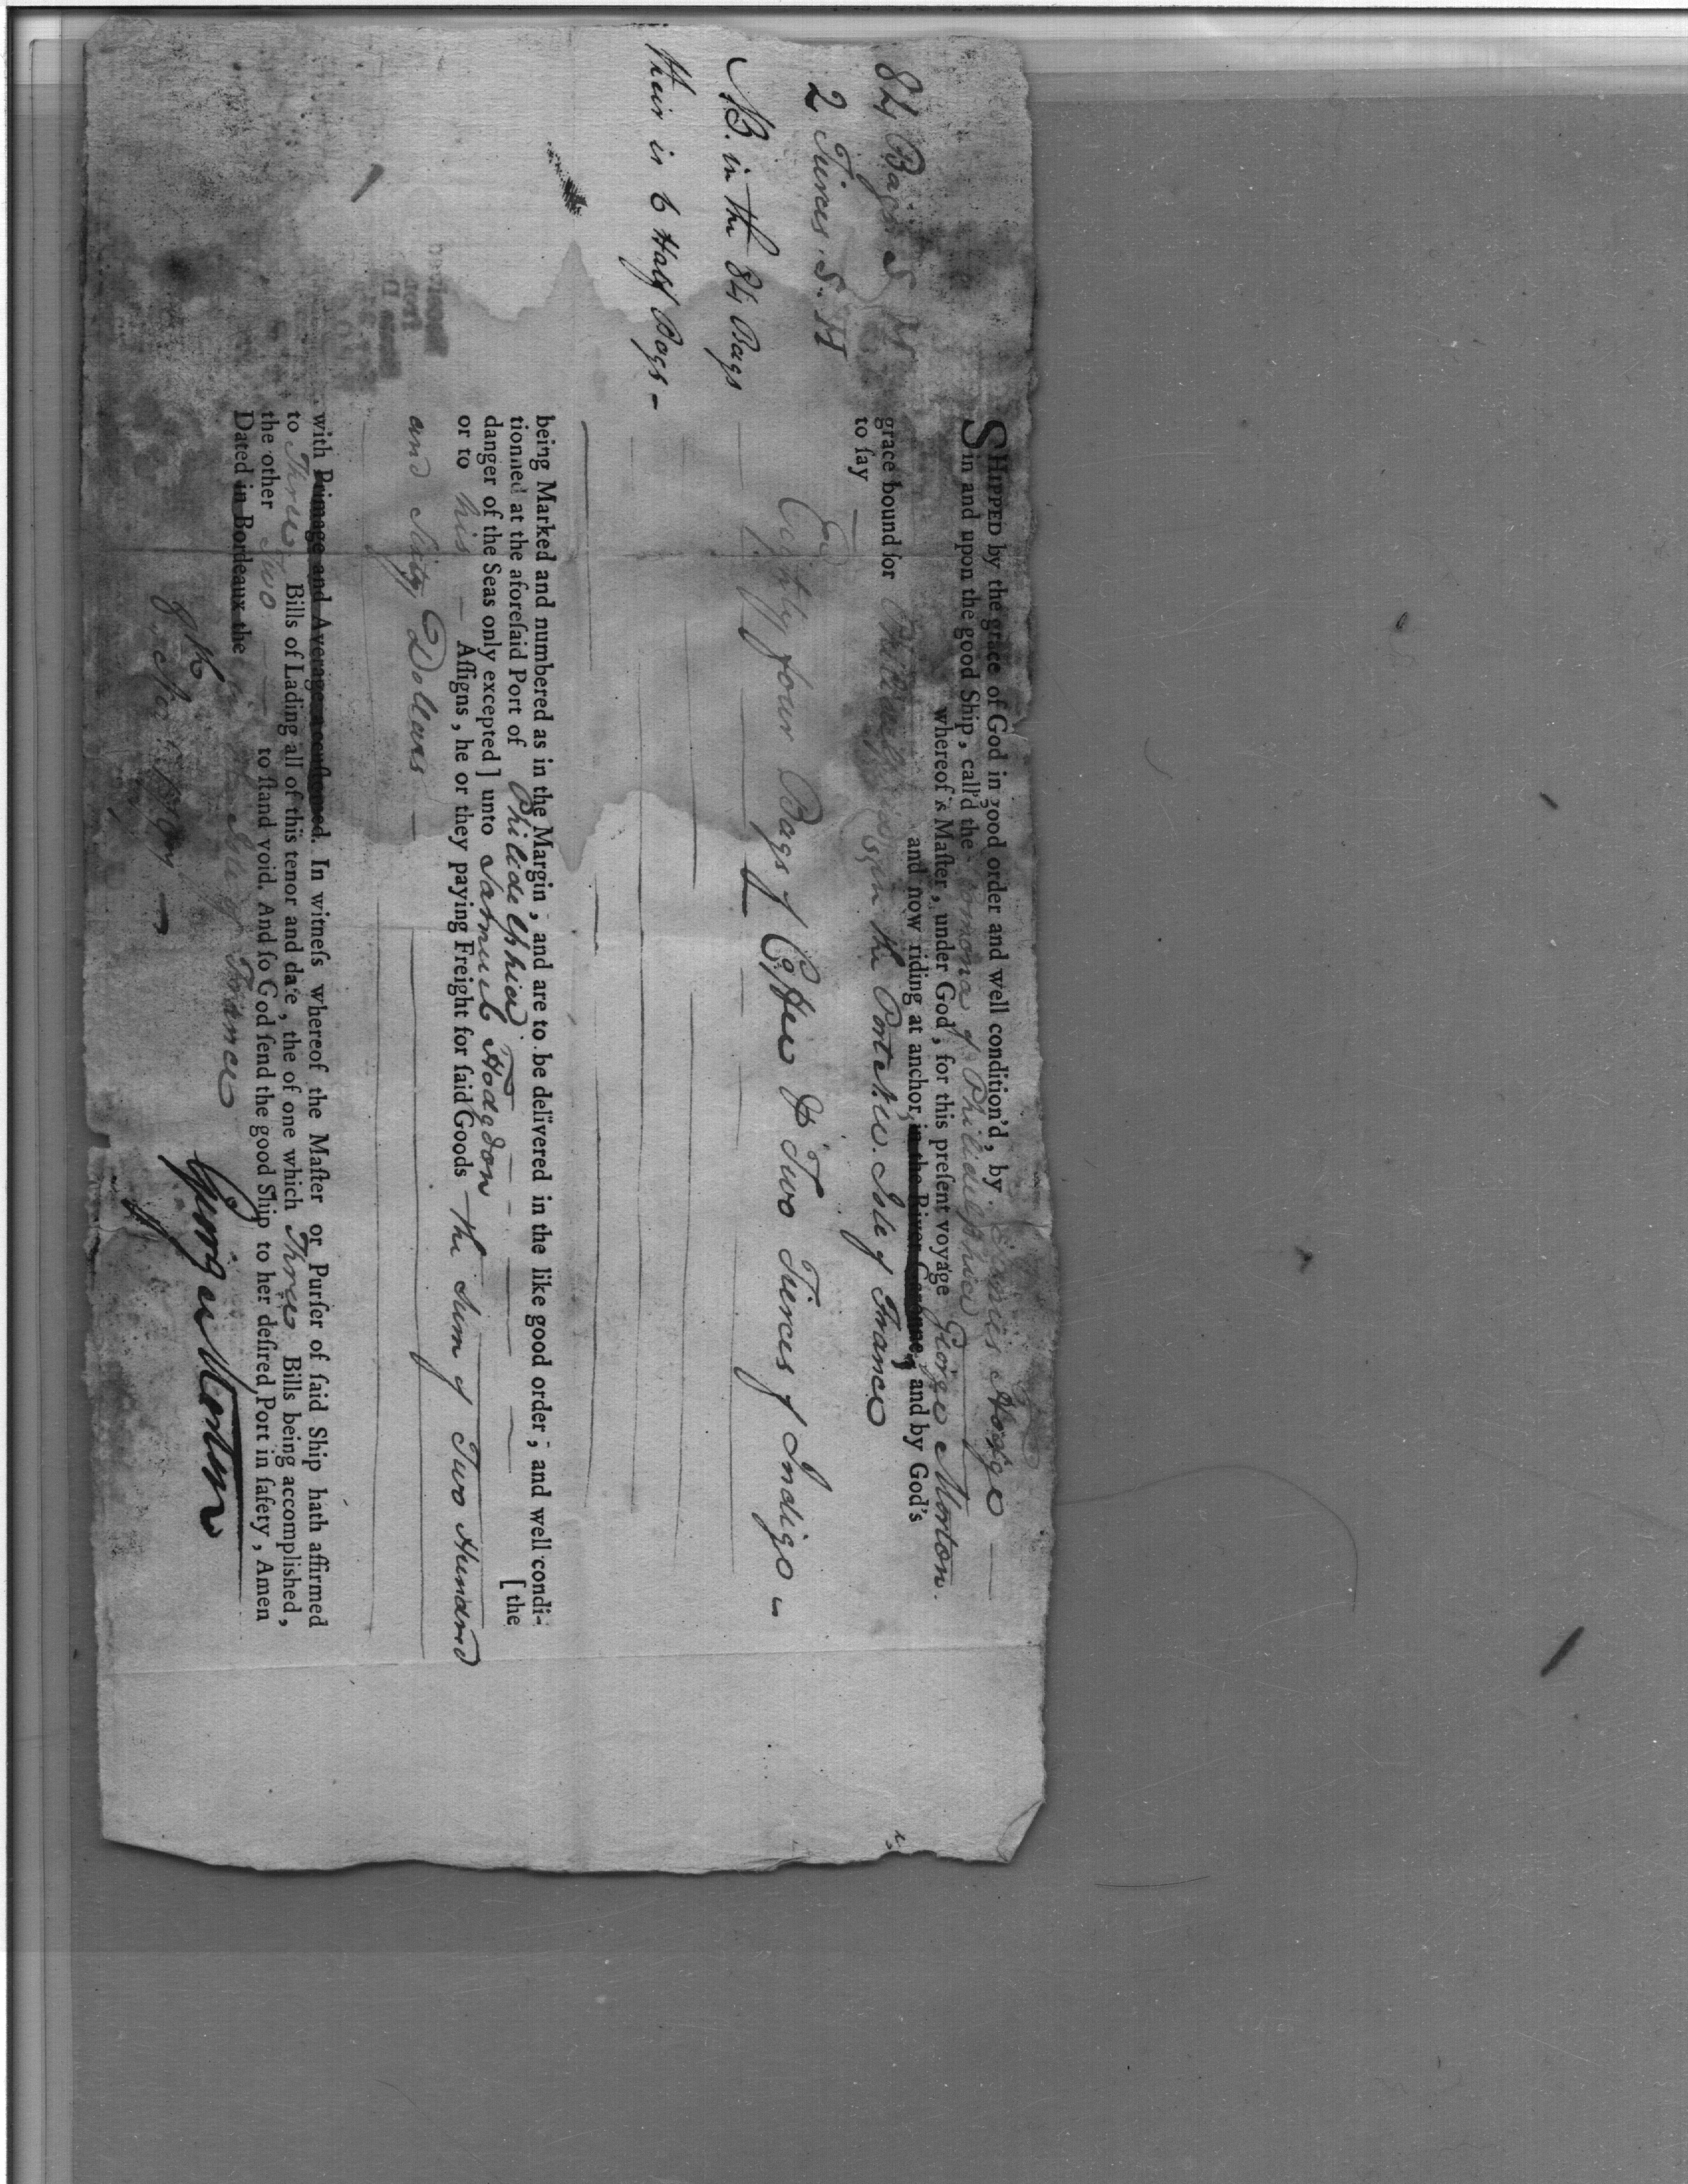 84 Bags S H
2 Tierces. S. H
NB. in the 84 Bags
their is 6 Half Bags -
SHIPPED by the grace of God in good order and well condition'd, by James
in and upon the good Ship, call'd the Pomona of Philidelphia
whereof is Maſter, under God, for this preſent voyage George Morton.
and now riding at anchor, in the River Garonne, and by God's
grace bound for in the Port N.W. Isle of France
to ſay
Eighty four Bags of Coffee & Two Tierces of Indigo
being Marked and numbered as in the Margin, and are to be delivered in the like good order; and well condi-
tionned at the aforeſaid Port of Philidelphia [the
danger of the Seas only excepted] unto Samuel Hodgdon
or to his Aſſigns, he or they paying Freight for ſaid Goods the Sum of Two Hundred
and Sixty Dollars
with Primage and Average accuſtomed. In witneſs whereof the Maſter or Purſer of ſaid Ship hath affirmed
to Three Bills of Lading all of this tenor and date, the of one which Three Bills being accomplished,
the other Two to ſtand void. And ſo God ſend the good Ship to her deſired Port in ſafety, Amen
Dated in Bordeaux the Isle of France
George Morton